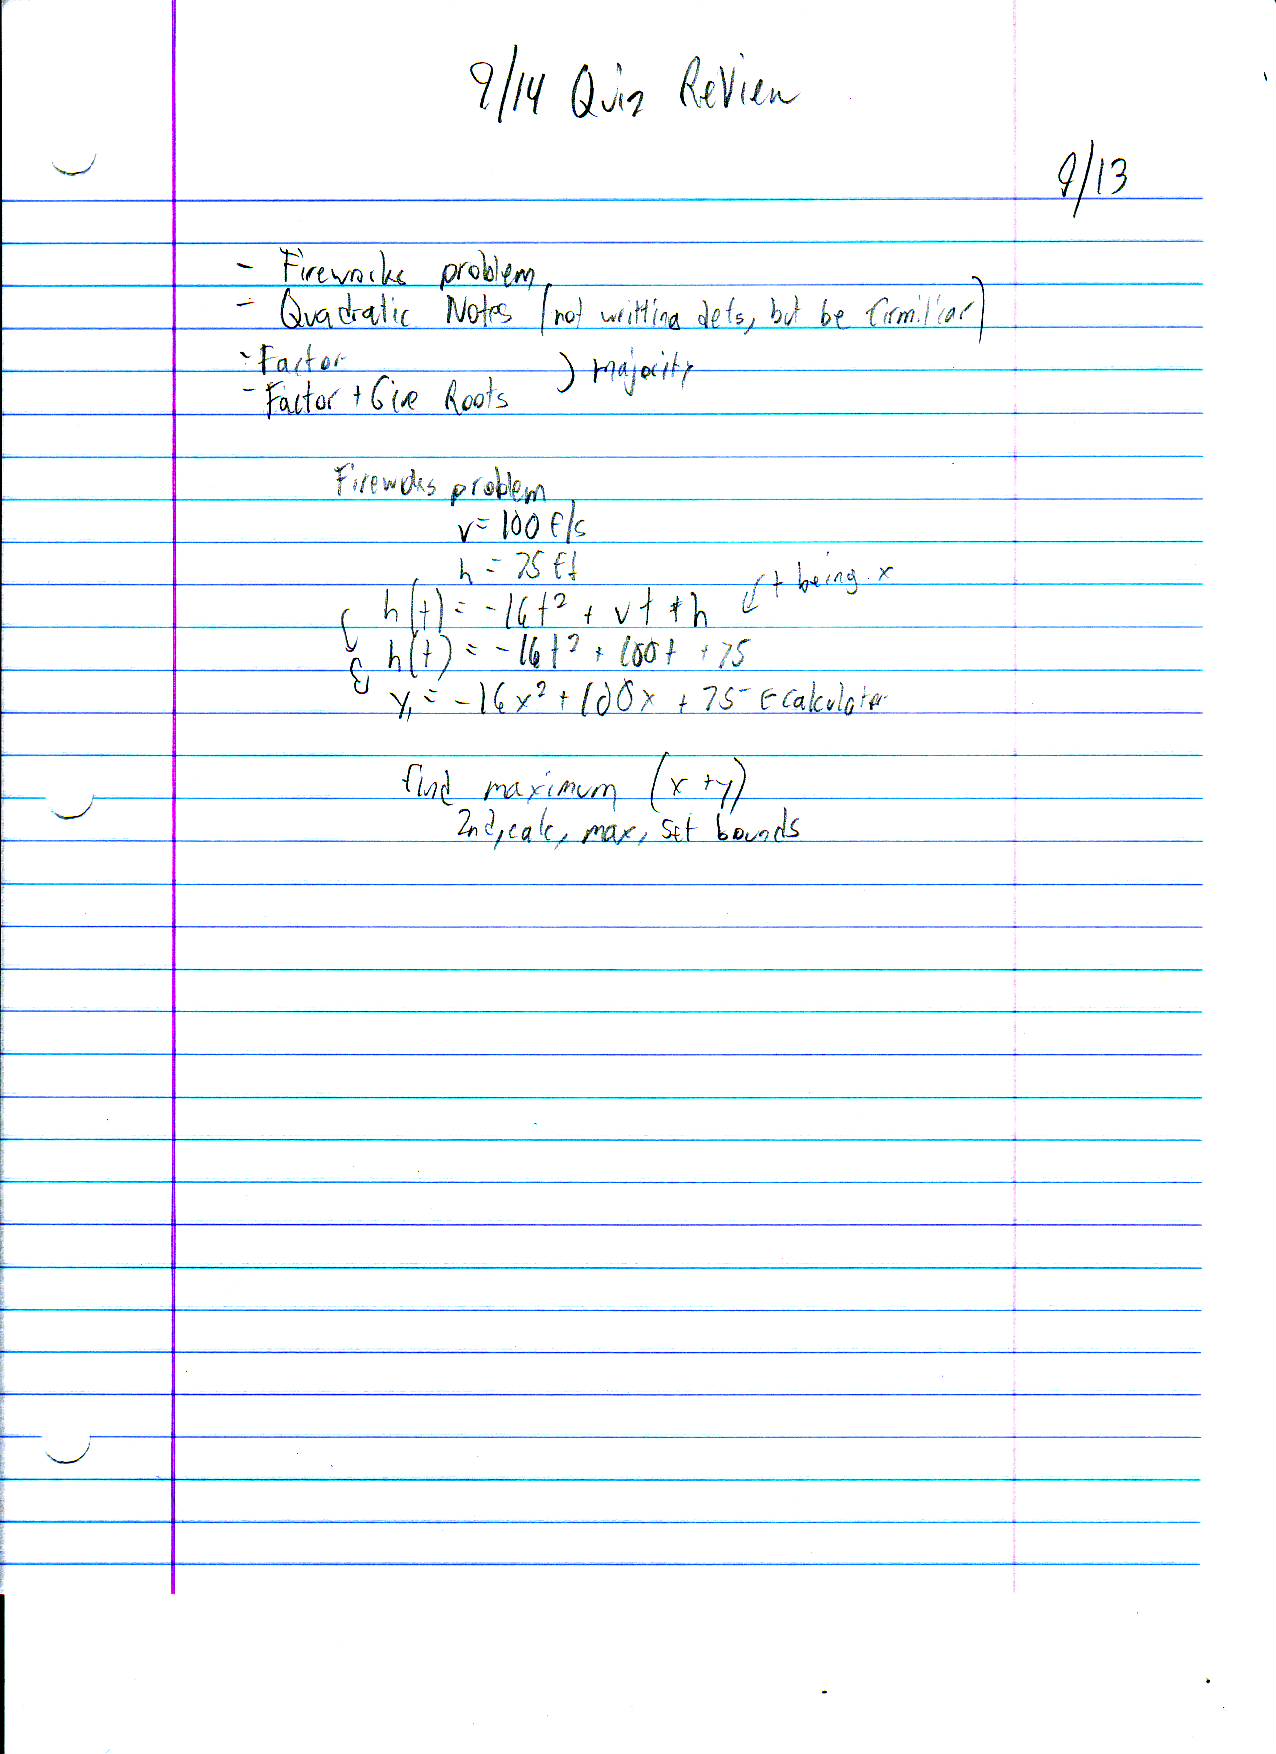 9/14 Quiz Review
9/13
- Fireworks problem
- Quadratic Notes (not writting defs, but be firmiliar)
- Factor
) majority
- Factor + Give Roots
Fireworks problem
v = 100 f/s
h = 75 ft
t being x
h(t) = -16t² + vt + h
h(t) = -16t² + 100t + 75
y₁ = -16x² + 100x + 75 ← calculator
find maximum (x + y)
2nd, calc, max, set bounds